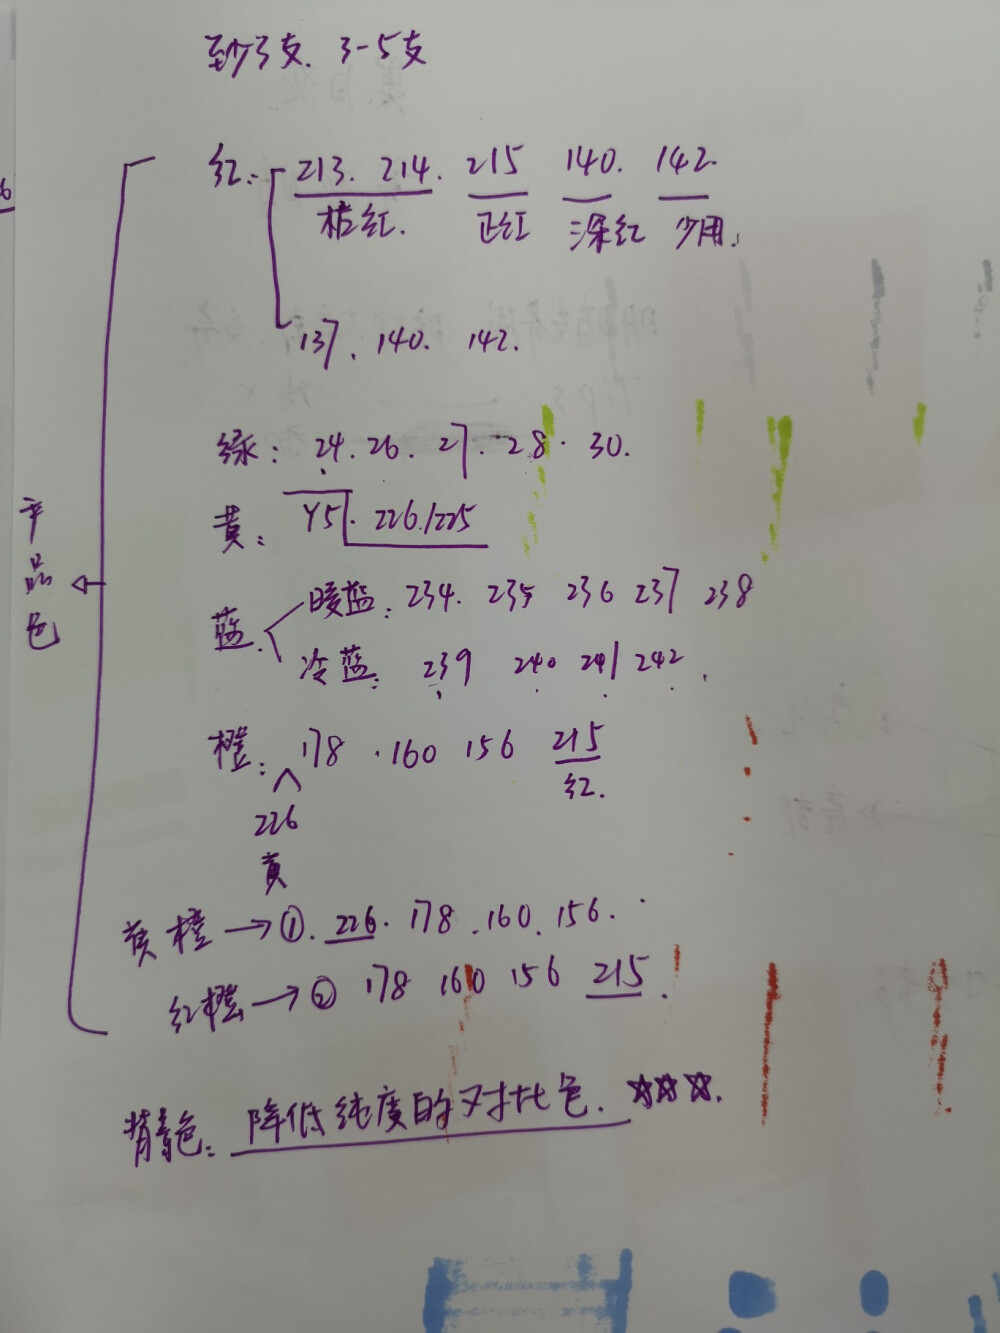 至少3支. 3-5支
红: 213. 214. 215 140. 142.
桔红. 正红 深红 少用.
137. 140. 142.
绿: 24. 26. 27. 28. 30.
黄: Y5. 226./225
产品色
蓝.
暖蓝: 234. 235 236 237 238
冷蓝: 239 240 241 242.
橙: 178 .160 156 215
红.
226
黄
黄橙→①. 226. 178 .160. 156.
红橙→② 178 160 156 215.
背景色: 降低纯度的对比色. ☆☆☆.